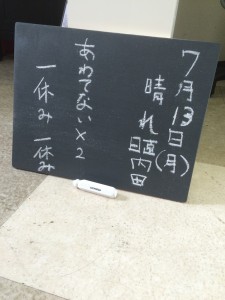 7月13日(月)
晴れ 日直 内田
あわてない×2
一休み 一休み